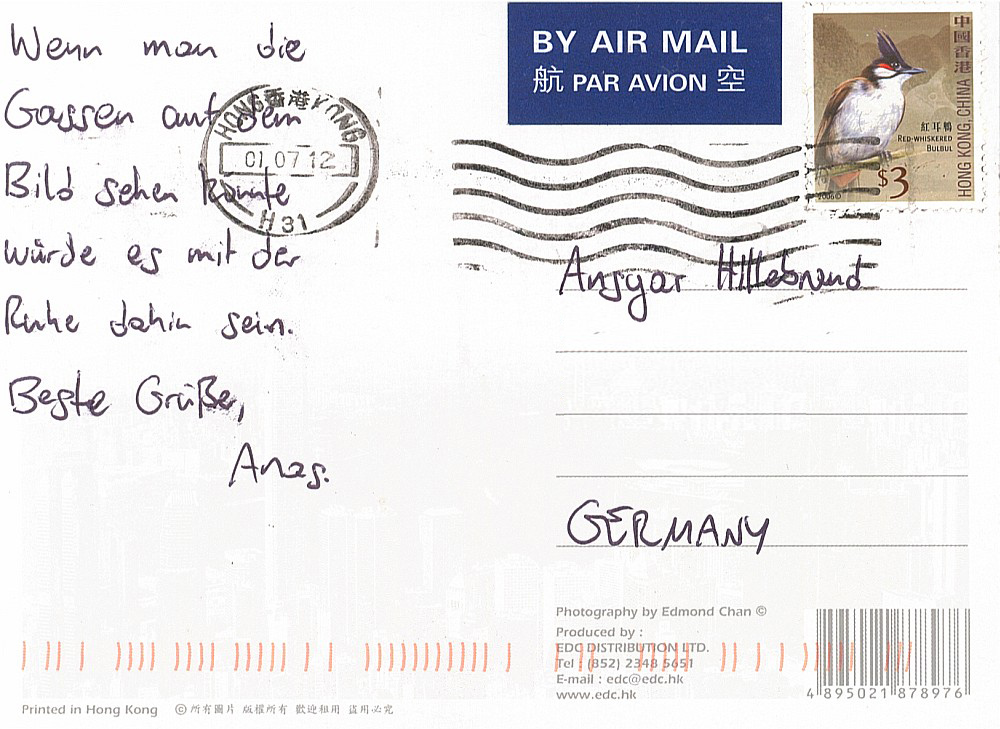 Wenn man die
Gassen auf dem
Bild sehen könnte
würde es mit der
Ruhe dahin sein.
Beste Grüße,
Anas.
HONG 香港 KONG
01.07.12
H 31
BY AIR MAIL
航 PAR AVION 空
中國香港
HONG KONG, CHINA
紅耳鵯
RED-WHISKERED
BULBUL
$3
2006©
Ansgar Hillebrand
GERMANY
Photography by Edmond Chan ©
Produced by :
EDC DISTRIBUTION LTD.
Tel : (852) 2348 5651
E-mail : edc@edc.hk
www.edc.hk
4 895021 878976
Printed in Hong Kong © 所有圖片 版權所有 歡迎租用 盜用必究